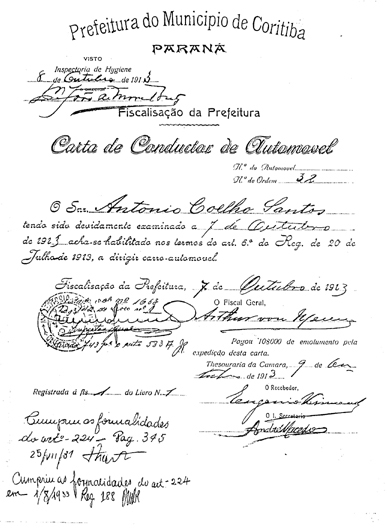 Prefeitura do Municipio de Coritiba
PARANÁ
VISTO
Inspectoria de Hygiene
8 de Outubro de 1913
Fiscalisação da Prefeitura
Carta de Conductor de Automovel
N.º do Automovel
N.º de Ordem 32
O Snr. Antonio Coelho Santos
tendo sido devidamente examinado a 7 de Outubro
de 1913 acha-se habilitado nos termos do art. 6.º do Reg. de 20 de
Julho de 1913, a dirigir carro-automovel.
Fiscalisação da Prefeitura, 7 de Outubro de 1913
O Fiscal Geral,
Arthur von
Pagou 10$000 de emolumento pela
expedição desta carta.
Thesouraria da Camara, 9 de Ou
tubro de 1913
O Recebedor,
Registrada á fls. 1 do Livro N. 1
Eugenio
O 1. Secretario
Cumpriu as formalidades
do artº-224- Pag. 345
25/VII/31
Cumpriu as formalidades do art-224
em 1/8/1933 Reg 188